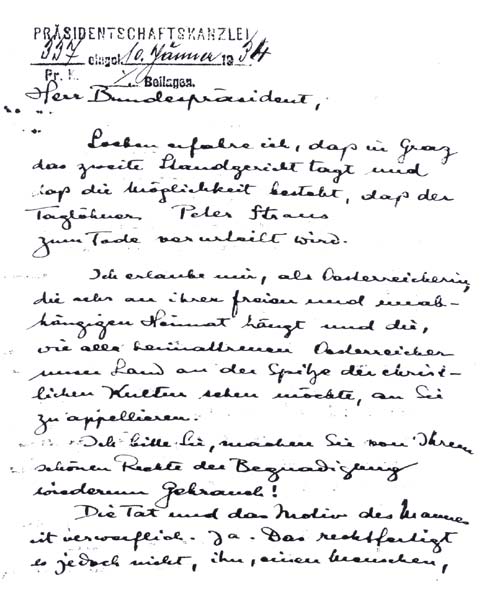 PRÄSIDENTSCHAFTSKANZLEI
337 eingel. 10. Jänner 1934
Pr. K. Beilagen.
Herr Bundespräsident,
Soeben erfahre ich, daß in Graz
das zweite Standgericht tagt und
daß die Möglichkeit besteht, daß der
Taglöhner Peter Straus
zum Tode verurteilt wird.
Ich erlaube mir, als Oesterreicherin,
die sehr an ihrer freien und unab-
hängigen Heimat hängt und die,
wie alle heimattreuen Oesterreicher
unser Land an der Spitze der christ-
lichen Kultur sehen möchte, an Sie
zu appellieren.
Ich bitte Sie, machen Sie von Ihrem
schönen Rechte der Begnadigung
wiederum Gebrauch!
Die Tat und das Motiv des Mannes
ist verwerflich. Ja. Das rechtfertigt
es jedoch nicht, ihn, einen Menschen,